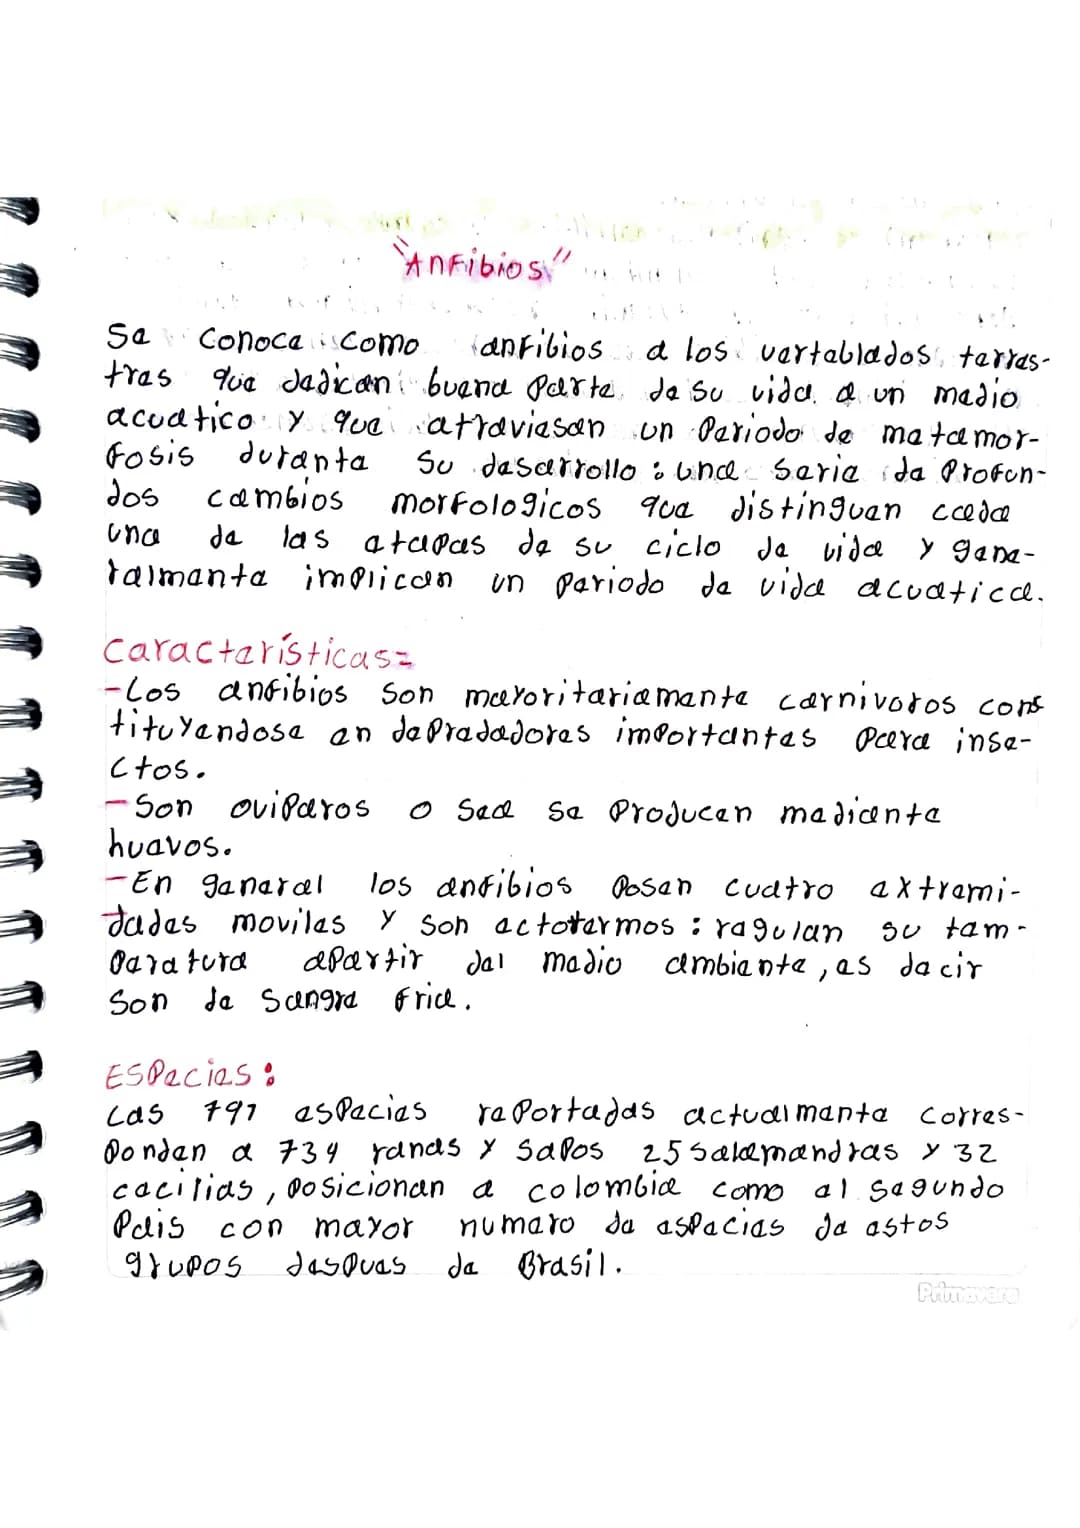 "Anfibios"
Se conoce como anfibios a los vertablados terres-
tres que dedican buena parte de su vida a un medio
acuatico y que atraviesan un Periodo de metamor-
fosis durante su desarrollo : una serie de Profun-
dos cambios morfologicos que distinguen cada
una de las etapas de su ciclo de vida y gene-
ralmente implican un periodo de vida acuatica.
Características=
-Los anfibios son mayoritariamente carnivoros cons
tituyendose en depradadores importantes para inse-
ctos.
-Son oviparos o sea se producen mediante
huevos.
-En general los anfibios posen cuatro extremi-
dades moviles y son ectotermos : regulan su tem-
peratura apartir del medio ambiente, es decir
son de sangre fria.
Especies :
Las 791 especies reportadas actualmente corres-
ponden a 734 ranas y sapos 25 salamandras y 32
cacilias, posicionan a colombia como el segundo
pais con mayor numero de especies de estos
grupos despues de Brasil.
Primavera